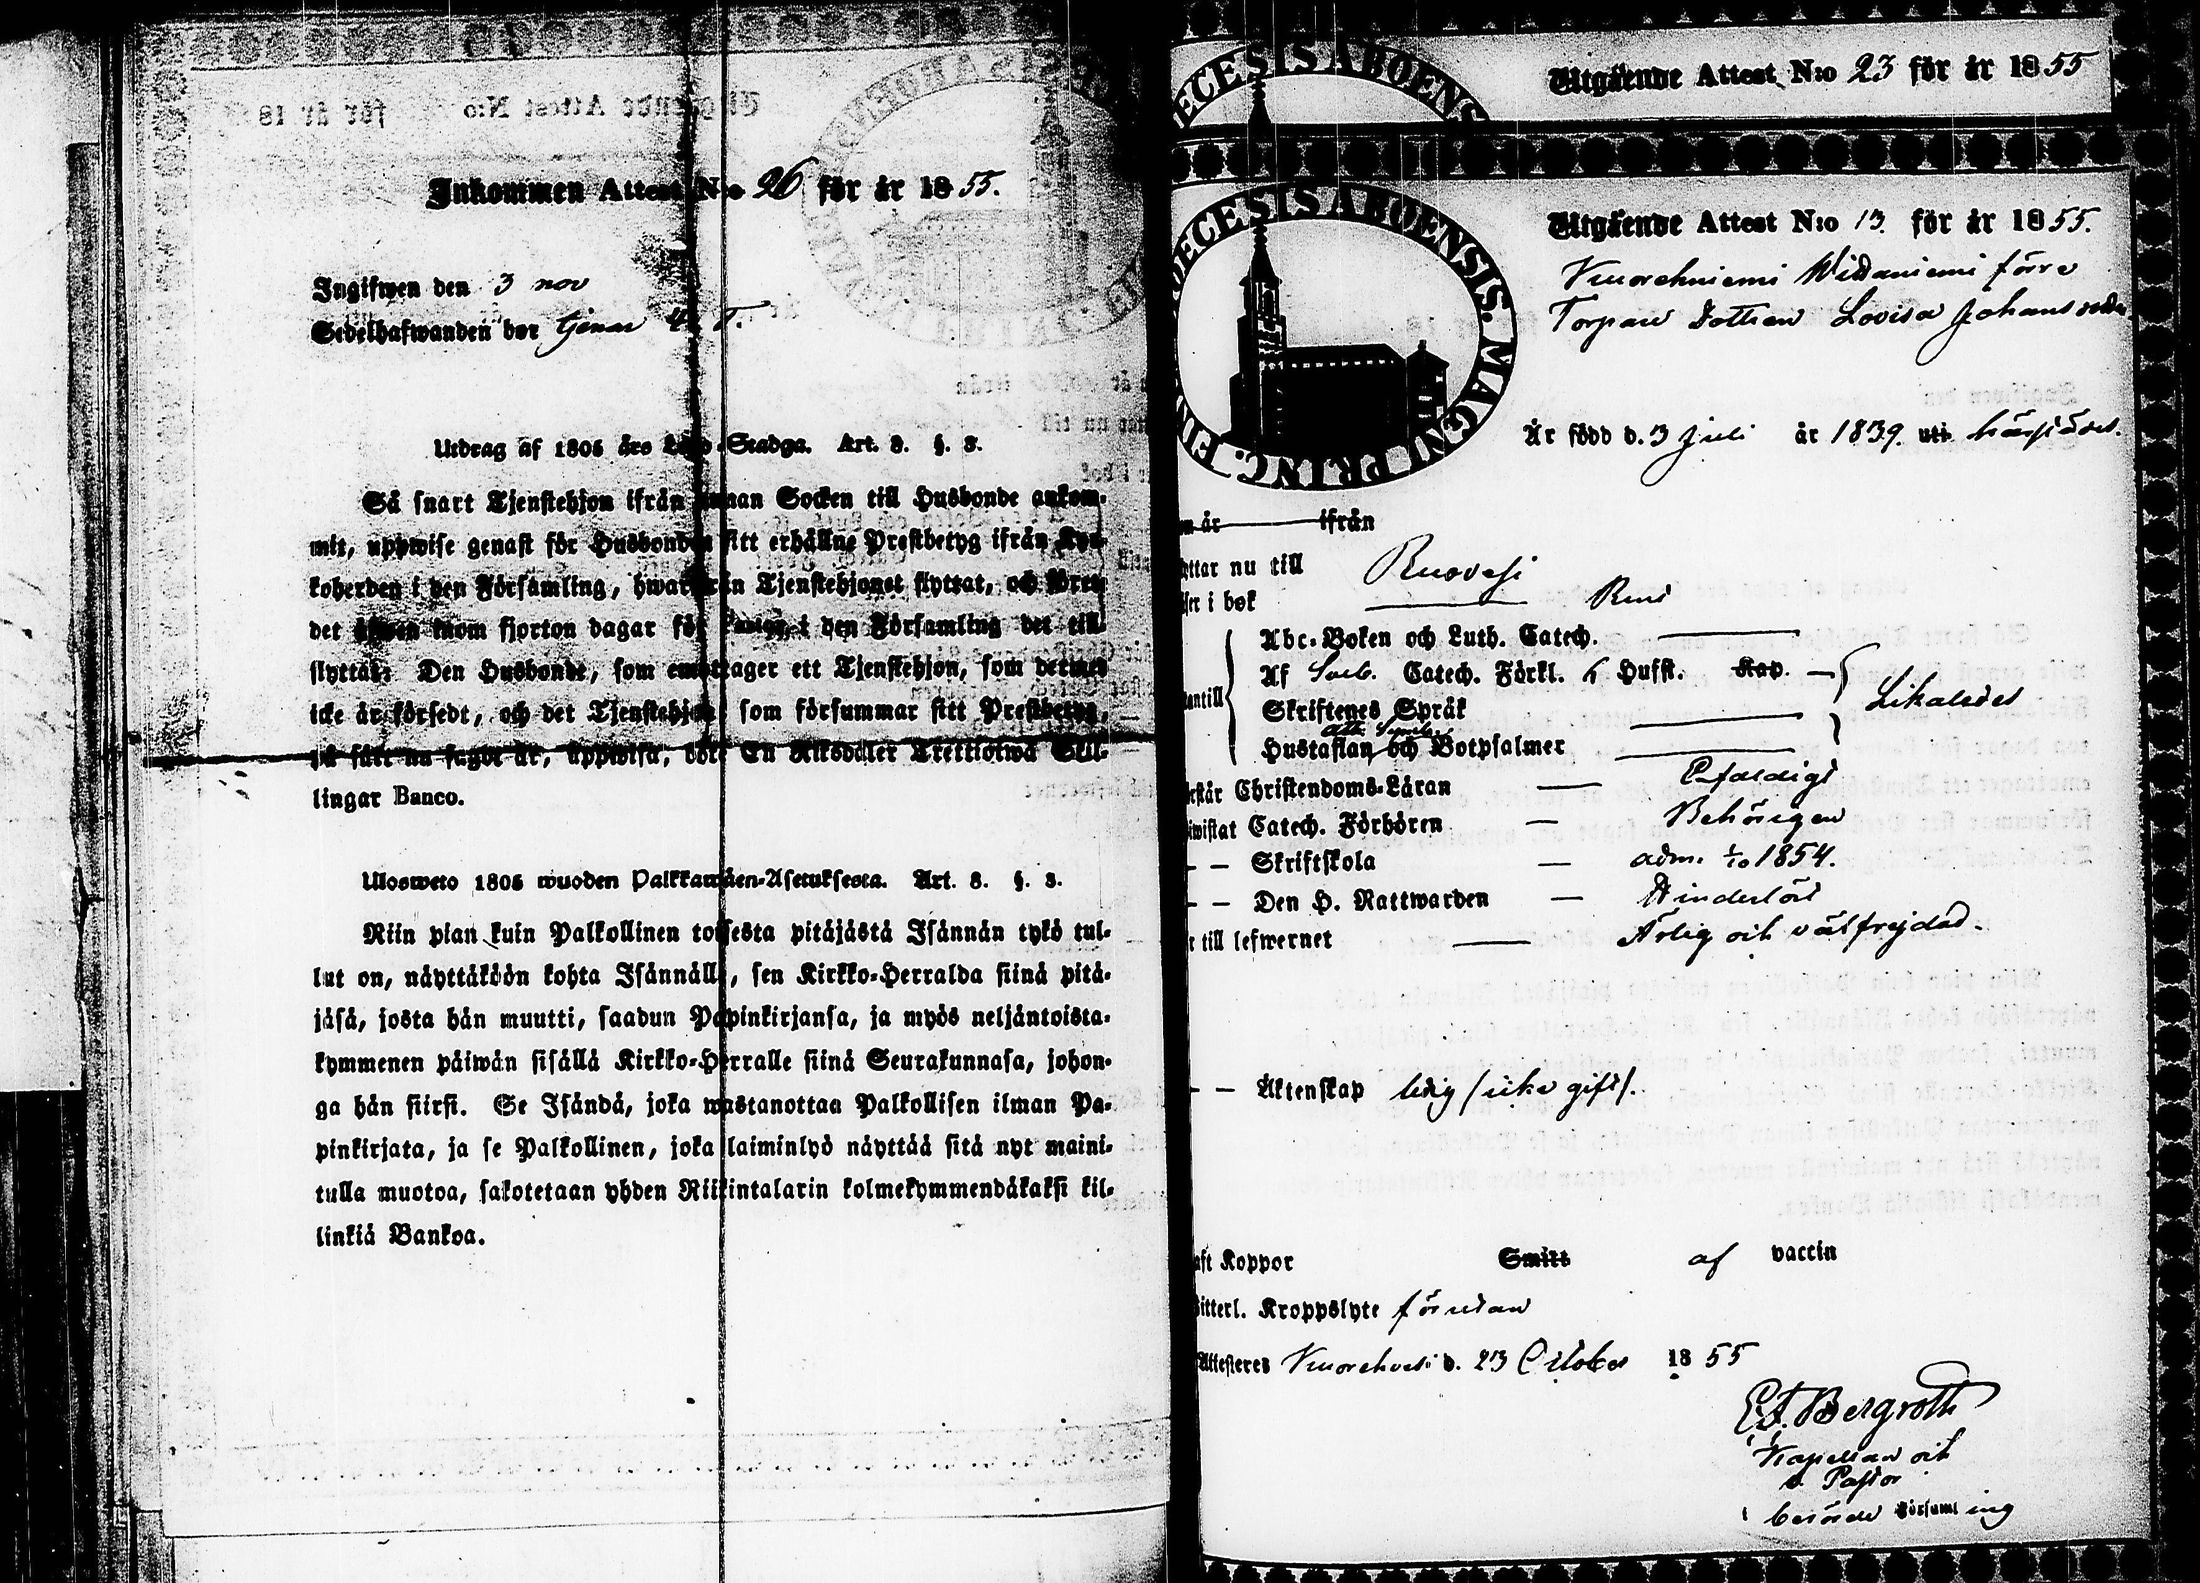 Inkommen Attest N:o 26 för år 1855.
Ingifwen den 3 nov
Sedelhafwanden bor tjenar
Utdrag af 1805 års Lego-Stadga. Art. 8. §. 8.
Så snart Tjenstehjon ifrån annan Socken till Husbonde ankom-
mit, uppwise genast för Husbonden sitt erhållne Prestbetyg ifrån Kyr-
koherden i den Församling, hwarifrån Tjenstehjonet flyttat, och förete
det äfwen inom fjorton dagar för i den Församling det till-
flyttat. Den Husbonde, som emottager ett Tjenstehjon, som dermed
icke är försedt, och det Tjenstehjon som försummar sitt Prestbetyg,
på sätt nu sagdt är, uppwisa, böte En Riksdaler Trettiotwå Skil-
lingar Banco.
Ulosweto 1805 wuoden Palkkawäen-Asetuksesta. Art. 8. §. 8.
Niin pian kuin Palkollinen toisesta pitäjästä Isännän tykö tul-
lut on, näyttäköön kohta Isännälle, sen Kirkko-Herralda siinä pitä-
jäsä, josta hän muutti, saadun Papinkirjansa, ja myös neljäntoista-
kymmenen päiwän sisällä Kirkko-Herralle siinä Seurakunnasa, johon-
ga hän siirsi. Se Isändä, joka wastanottaa Palkollisen ilman Pa-
pinkirjata, ja se Palkollinen, joka laiminlyö näyttää sitä nyt maini-
tulla muotoa, sakotetaan yhden Riikintalarin kolmekymmendäkaksi kil-
linkiä Bankoa.
ECESIS ABOENS
Utgående Attest N:o 23 för år 1855
DECESIS ABOENSIS. MAGNI PRINC. FIN
Utgående Attest N:o 13. för år 1855.
Kuorehniemi Widaniemi förre
Torpare Dottren Lovisa Johansdotter
Är född d. 3 Juli år 1839. uti härstädes.
år ifrån
ttar nu till Ruovesi
ser i bok Rent
Abc-Boken och Luth. Catech.
Af Sveb. Catech. Förkl. Hufst. Kap.
Likaledes
antill
Skriftenes Språk
Ath. Symb.
Hustaflan och Botpsalmer
står Christendoms-Läran Enfaldigt
iwistat Catech. Förhören Behörigen
– – Skriftskola adm. 1/10 1854.
– – Den H. Nattwarden Hinderlöst
r till lefwernet Ärlig och välfrejdad.
– – Äktenskap ledig (icke gift).
aft Koppor Smitt af vaccin
itterl. Kroppslyte förutan
Attesteres Kuorehvesi d. 23 October 1855
E. F. Bergroth
Kapellan och
v. Pastor
berörde Församling